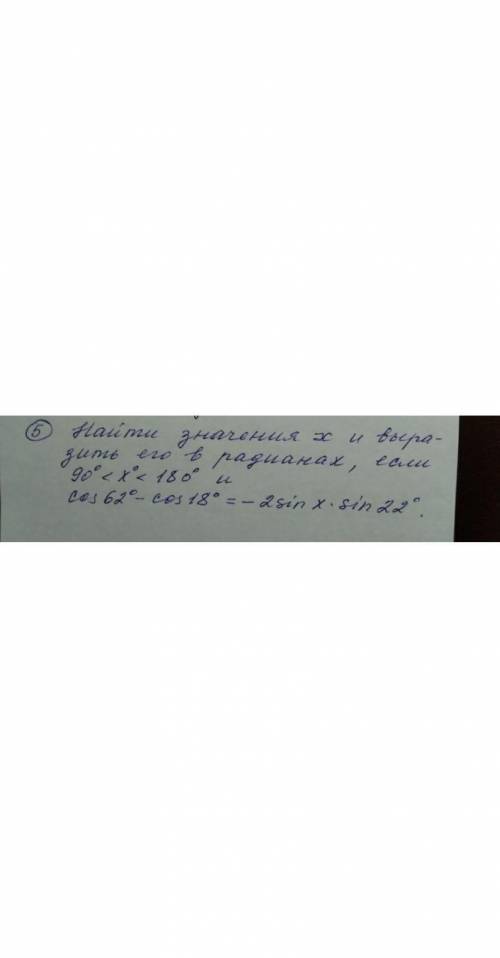 ⑤ Найти значения x и выра-
зить его в радианах, если
90° < x° < 180° и
cos 62° - cos 18° = - 2 sin x · sin 22°.